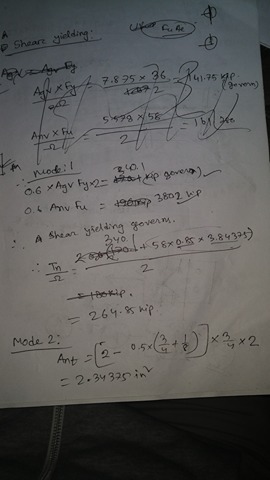 Shear yielding:
Agv × Fy / Ω = 7.875 × 36 / 2 = 141.75 kip (govern)
Anv × Fu / Ω = × 58 / 2 =
∴ mode: 1
0.6 × Agv Fy × 2 = 340.1 kip govern ✓
0.6 Anv Fu = 380.2 kip
∴ Shear yielding governs.
∴ Tn / Ω = 340.1 + 58 × 0.85 × 3.84375 / 2
= 264.85 kip
Mode 2:
Ant = [2 - 0.5 × (3/4 + 1/8)] × 3/4 × 2
= 2.34375 in²